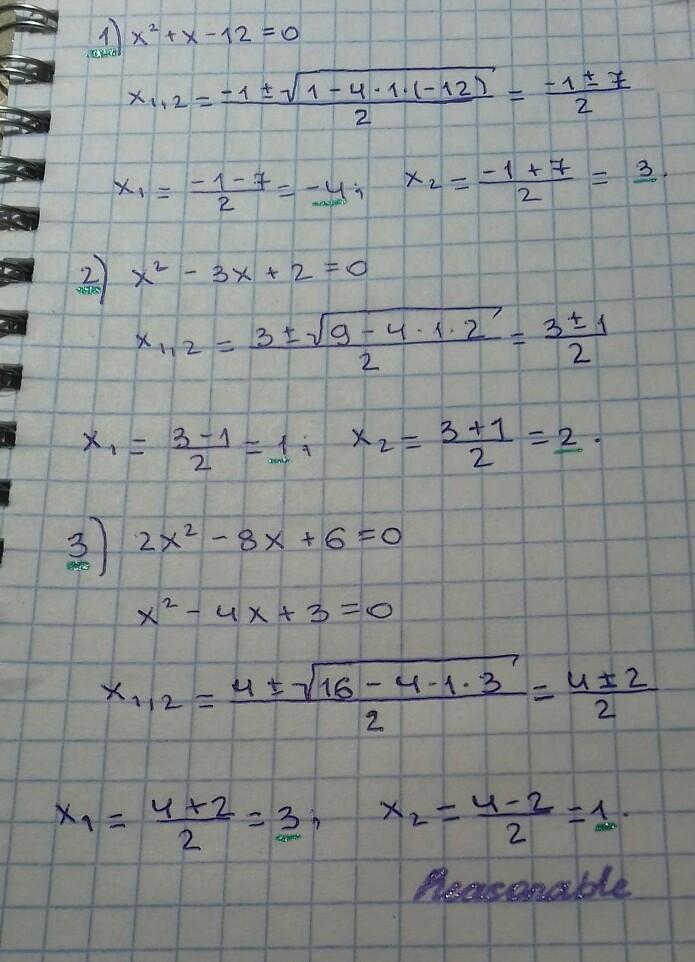 1) x² + x - 12 = 0
x₁,₂ = (-1 ± √(1 - 4 · 1 · (-12)))/2 = (-1 ± 7)/2
x₁ = (-1 - 7)/2 = -4; x₂ = (-1 + 7)/2 = 3.
2) x² - 3x + 2 = 0
x₁,₂ = (3 ± √(9 - 4 · 1 · 2))/2 = (3 ± 1)/2
x₁ = (3 - 1)/2 = 1; x₂ = (3 + 1)/2 = 2.
3) 2x² - 8x + 6 = 0
x² - 4x + 3 = 0
x₁,₂ = (4 ± √(16 - 4 · 1 · 3))/2 = (4 ± 2)/2
x₁ = (4 + 2)/2 = 3; x₂ = (4 - 2)/2 = 1.
Reasonable